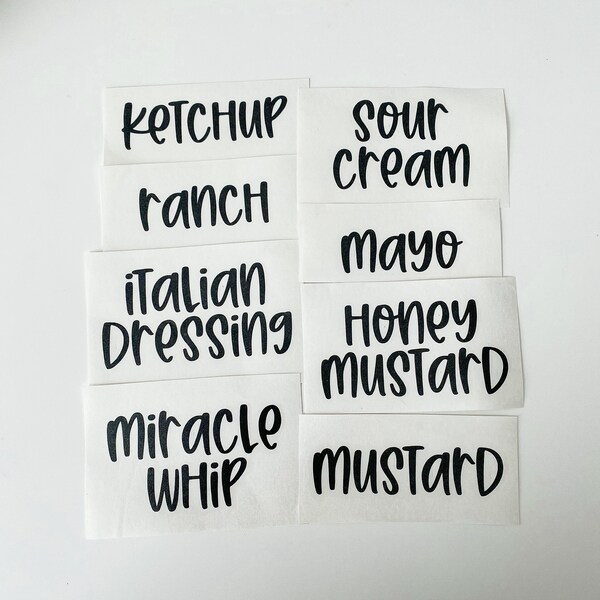 KETCHUP
ranCH
iTalian
Dressing
miracle
WHiP
sour
cream
mayo
Honey
musTarD
musTarD